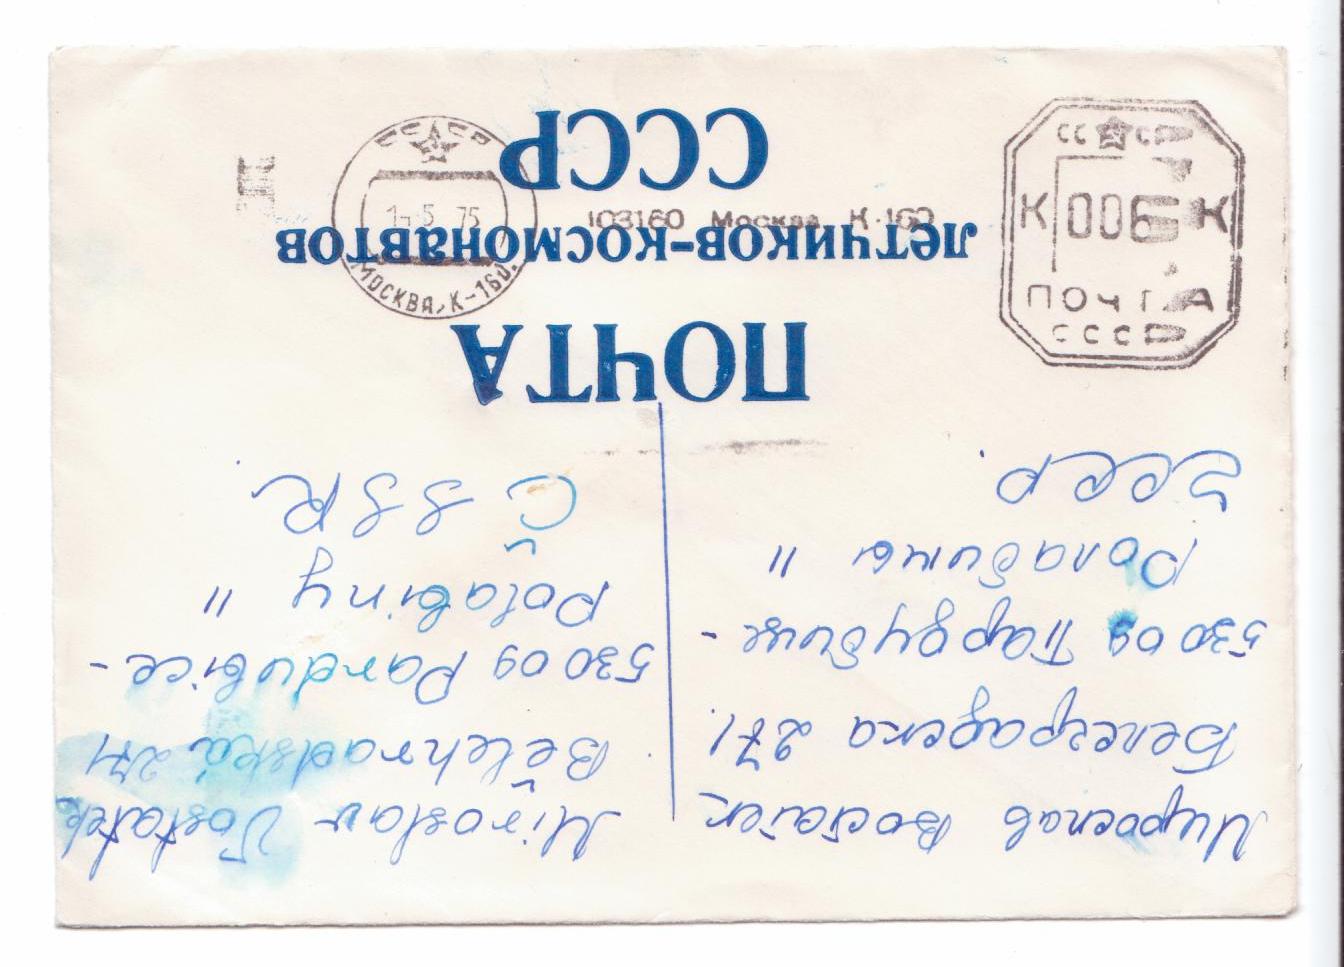 Мирослав Востатек
Белеградска 271.
530 09 Пардубице -
Полабины "
ЧССР.
Miroslav Vostatek
Bělehradská 271
530 09 Pardubice -
Polabiny "
ČSSR.
ПОЧТА
ЛЕТЧИКОВ-КОСМОНАВТОВ
СССР
СССР
5 75
МОСКВА, К-160.
103160 Москва, К-160
СССР
К 006 К
ПОЧТА
СССР